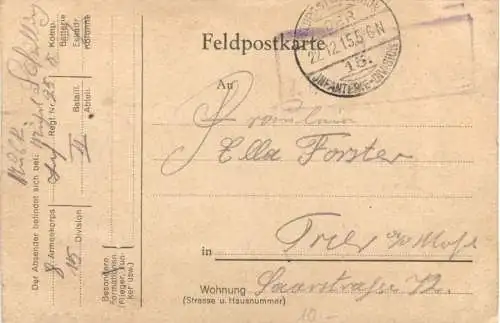 Feldpostkarte
FELDPOSTEXPEDITION
DER
22.12.15.5-6N
15.
INFANTERIE-DIVISION
An
Fräulein
Ella Forster
in Trier a/d Mosel
Wohnung Saarstraße 72.
(Strasse u. Hausnummer)
10.-
Der Absender befindet sich bei:
8. Armeekorps
15 Division
Inf Regt Nr. 25
II Bataill.
Abteil.
8 Komp.
Batterie
Eskadr.
Kolonne
Besondere
Formationen
(Flieger, Funker
usw.)